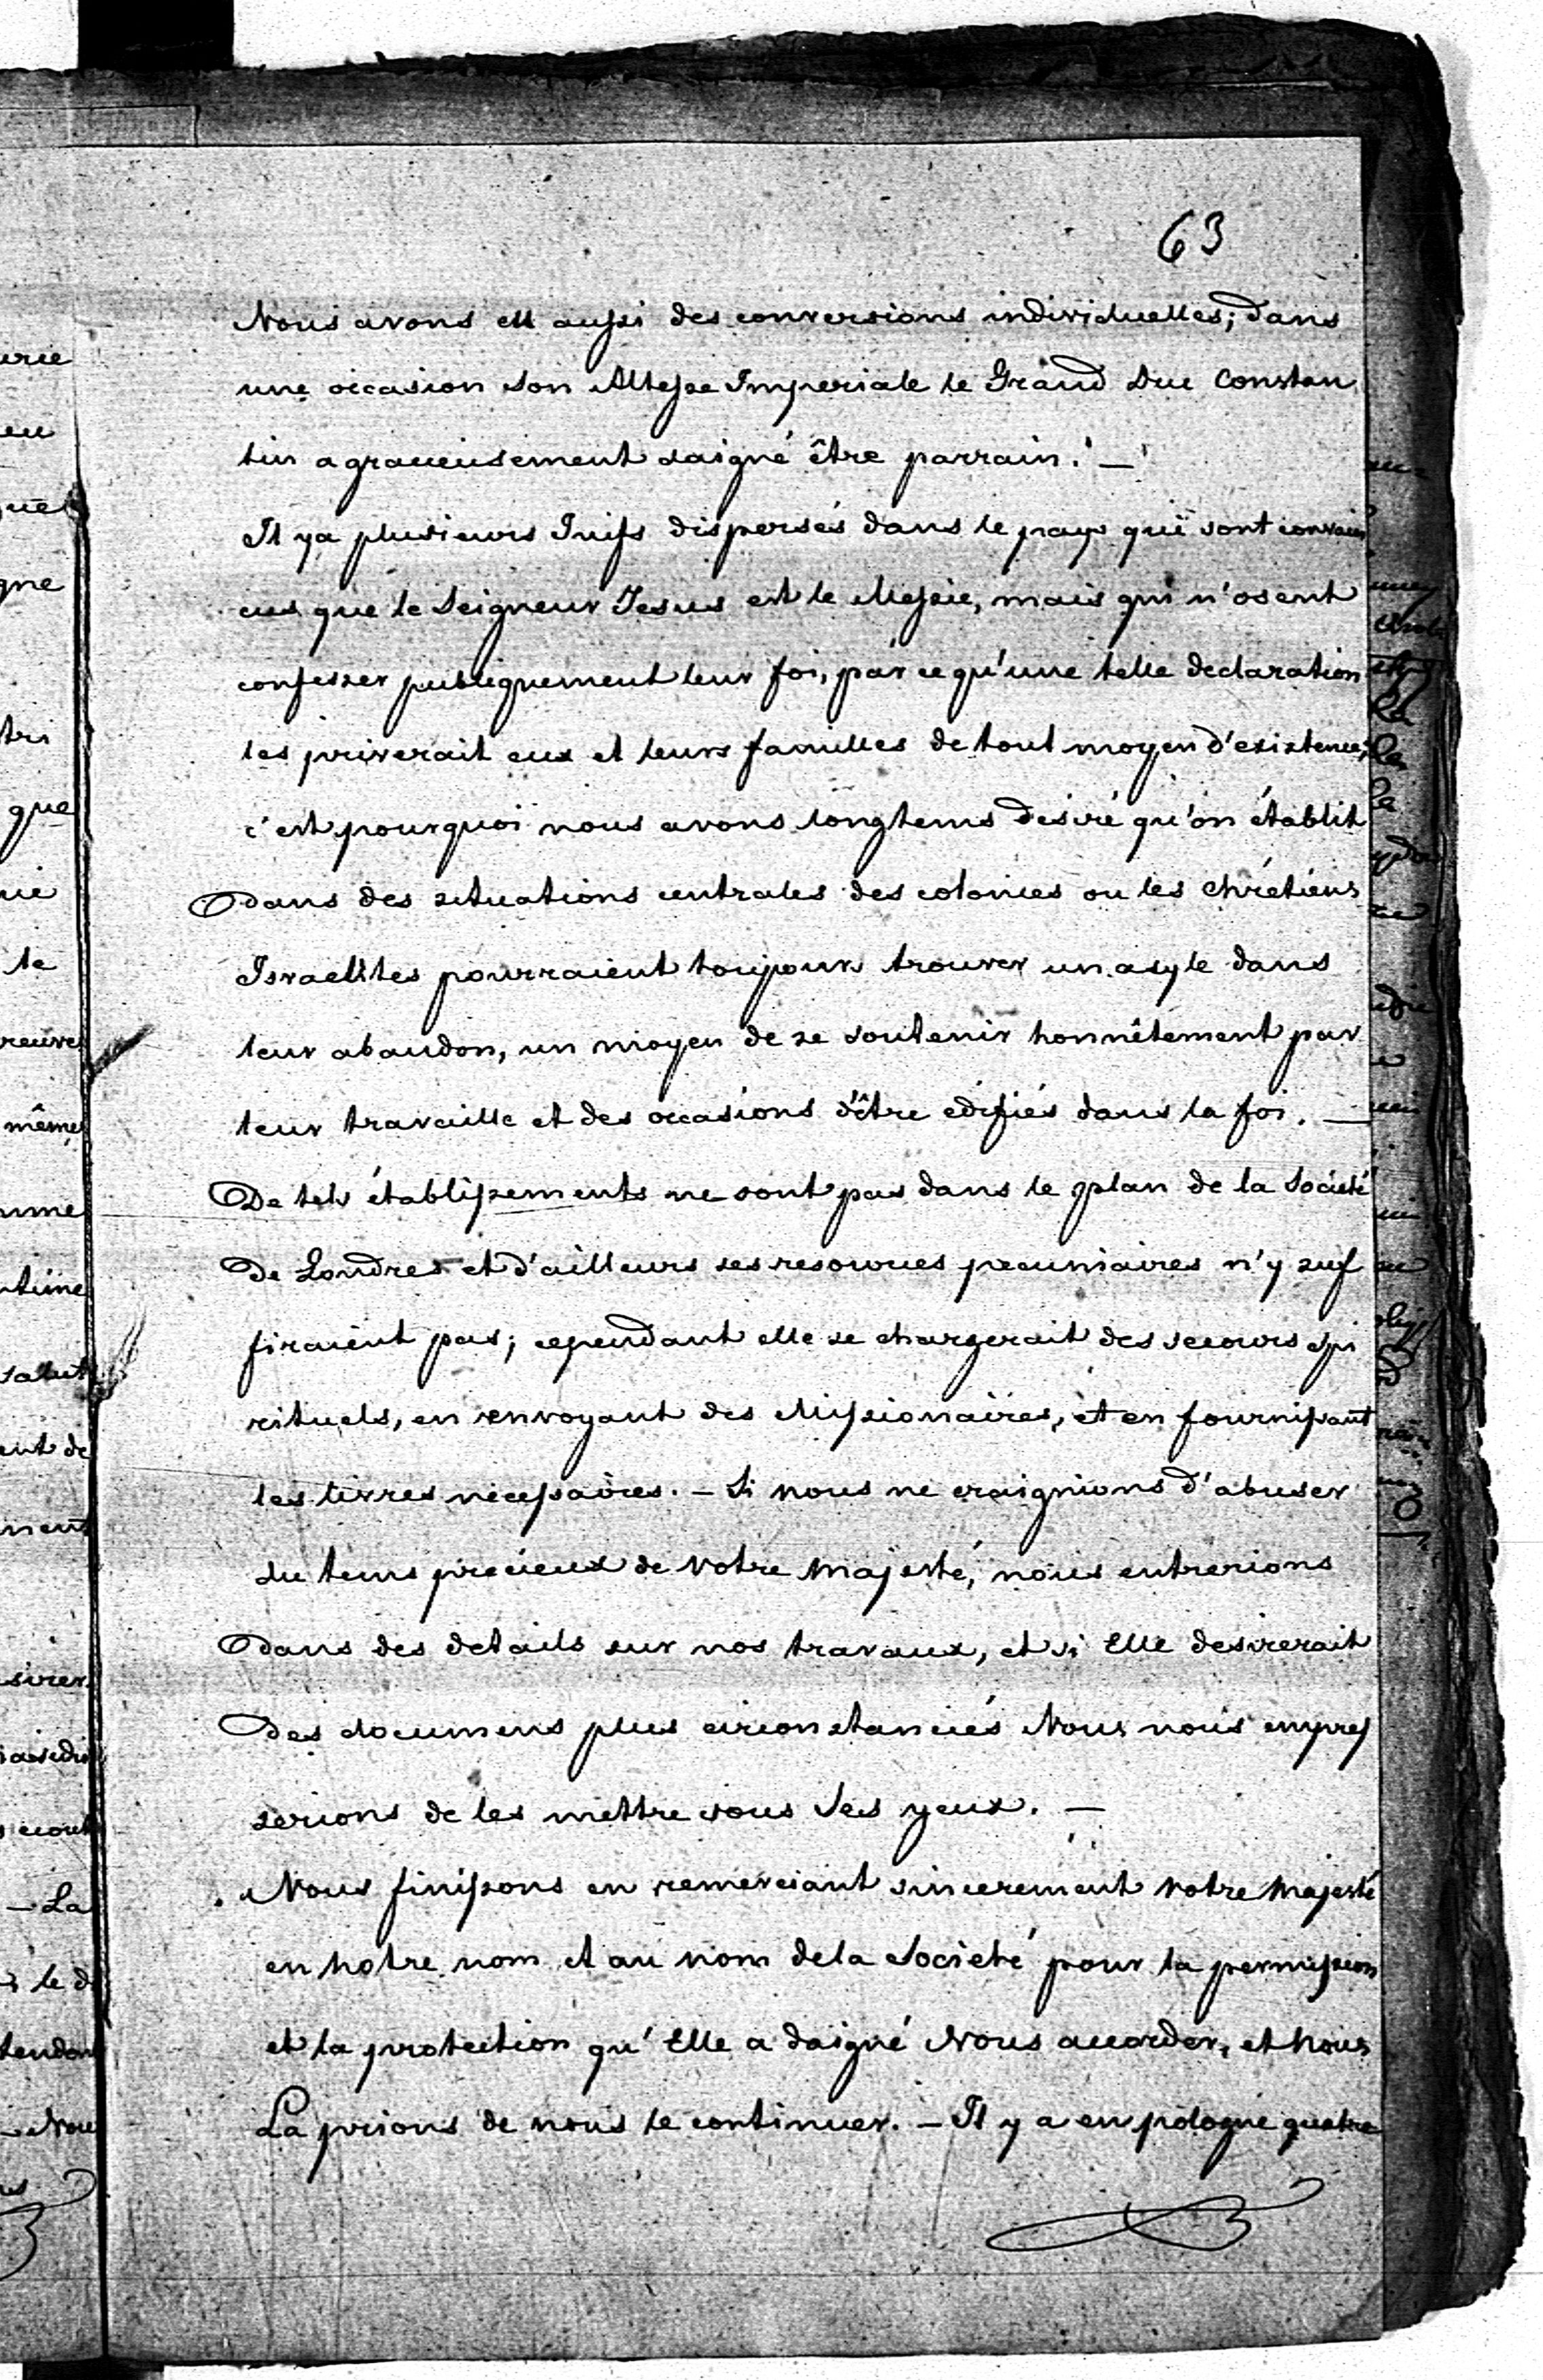 63
Nous avons eu aussi des conversions individuelles; dans
une occasion son Altesse Imperiale le Grand Duc Constan
tin a gracieusement daigné être parrain. —
Il y a plusieurs Juifs dispersés dans le pays qui sont convain
cus que le Seigneur Jesus est le Messie, mais qui n'osent
confesser publiquement leur foi, par ce qu'une telle declaration
les priverait eux et leurs familles de tout moyen d'existence;
c'est pourquoi nous avons longtems desiré qu'on établit
dans des situations centrales des colonies ou les chrétiens
Israelites pourraient toujours trouver un asyle dans
leur abandon, un moyen de se soutenir honnêtement par
leur travaille et des occasions d'être edifiés dans la foi. —
De tels établissements ne sont pas dans le plan de la Société
de Londres et d'ailleurs ses resources pecuniaires n'y suf
firaient pas; cependant elle se chargerait des secours spi
rituels, en envoyant des Missionaires, et en fournissant
les livres necessaires. — Si nous ne craignions d'abuser
du tems precieux de Votre Majesté, nous entrerions
dans des details sur nos travaux, et si Elle desirerait
des documens plus circonstanciés Nous nous empres
serions de les mettre sous Ses yeux. —
Nous finissons en remerciant sincerement Votre Majesté
en notre nom et au nom de la Societé pour la permission
et la protection qu'Elle a daigné Nous accorder, et nous
La prions de nous le continuer. — Il y a en pologne quatre